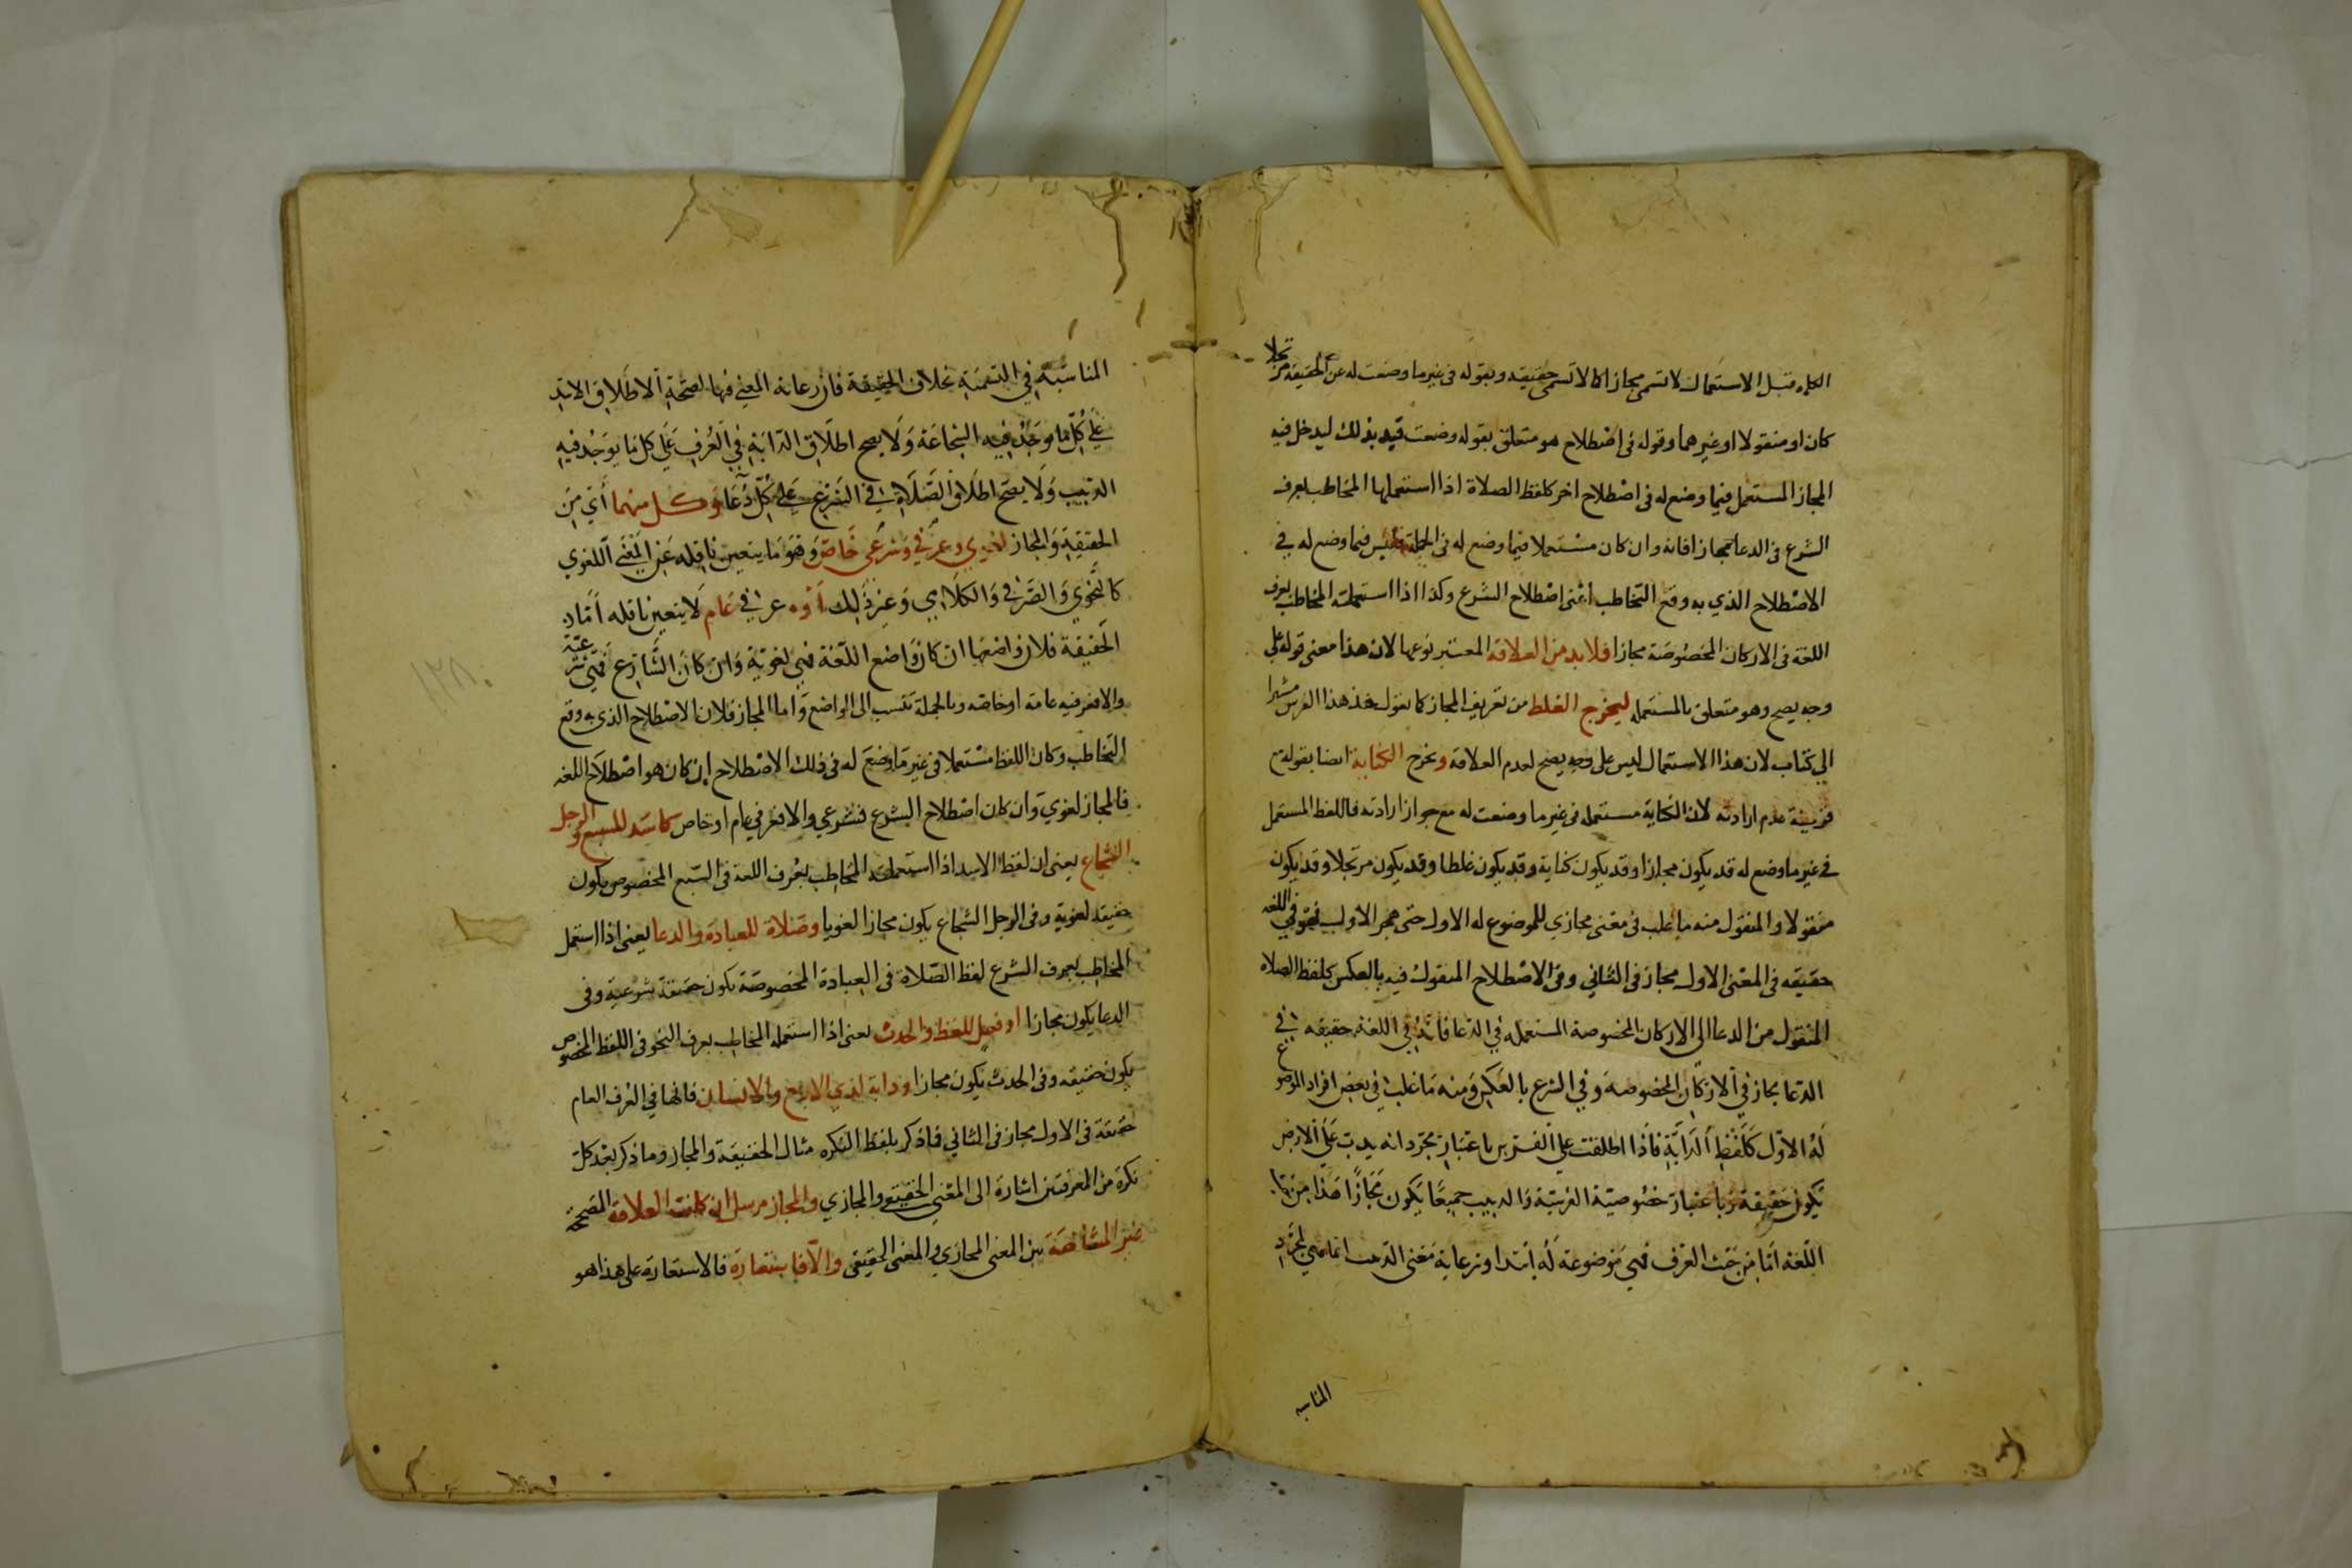 الكلمة قبل الاستعمال لا تسمى مجازا كما لا تسمى حقيقه وبقوله فى غير ما وضعت له عن الحقيقة مرتجلا
كان او منقولا او غيرهما وقوله فى اصطلاح هو متعلق بقوله وضعت قيد بذلك ليدخل فيه
المجاز المستعمل فيما وضع له فى اصطلاح اخر كلفظ الصلاة اذا استعملها المخاطب بعرف
الشرع فى الدعا مجازا فانه وان كان مستعملا فيما وضع له فى الجملة فليس فيما وضع له في
الاصطلاح الذي به وقع التخاطب اعنى اصطلاح الشرع وكذا اذا استعملته المخاطب بعرف
اللغة فى الاركان المخصوصة مجازا فلا بد من العلاقة المعتبر نوعها لان هذا معنى قوله على
وجه يصح وهو متعلق بالمستعمله ليخرج الغلط من تعريف المجاز كما نقول خذ هذا الفرس مشيرا
الي كتاب لان هذا الاستعمال ليس على وجه يصح لعدم العلاقة وتخرج الكناية ايضا بقوله مع
قرينة عدم ارادته لان الكناية مستعمله فى غير ما وضعت له مع جواز ارادته فاللفظ المستعمل
في غير ما وضع له قد يكون مجازا وقد يكون كناية وقد يكون غلطا وقد يكون مرتجلا وقد يكون
منقولا والمنقول منه ما غلب فى معنى مجازي للموضوع له الاول حتى هجر الاول فهو في اللغه
حقيقه فى المعنى الاول مجاز فى الثاني وفى الاصطلاح المنقول فيه بالعكس كلفظ الصلاه
المنقول من الدعا الى الاركان المخصوصة المستعمله في الدعا فانه في اللغة حقيقه في
الدعا مجاز في الاركان المخصوصة وفي الشرع بالعكس ومنه ما غلب في بعض افراد الموضوع
له الاول كلفظ الدابة فاذا اطلقت علي الفرس باعتبار مجرد انه يدب على الارض
يكون حقيقة وباعتبار خصوصية الفرسية والدبيب جميعا يكون مجازا هذا من
اللغة اما من حيث العرف فهي موضوعة له ابتدا ورعاية معنى الدبيب انما هي لمجرد
المناسبه
المناسبة في التسمية بخلاف الحقيقة فان رعاية المعنى فيها لصحة الاطلاق الاسد
علي كل ما يوجد فيه الشجاعة ولا يصح اطلاق الدابة في العرف على كل ما يوجد فيه
الدبيب ولا يصح اطلاق الصلاة في الشرع على كل دعا وكل منهما أي من
الحقيقة والمجاز لغوي وعرفي وشرعي خاص وهو ما يتعين ناقله عن المعنى اللغوي
كالنحوي والصرفي والكلامي وغير ذلك او عرفي عام لا يتعين ناقله أما
الحقيقة فلان واضعها ان كان واضع اللغة فهي لغوية وان كان الشارع فهي شرعية
والا فعرفيه عامة او خاصه وبالجملة تنسب الى الواضع واما المجاز فلان الاصطلاح الذى به وقع
التخاطب وكان اللفظ مستعملا فى غير ما وضع له فى ذلك الاصطلاح إن كان هو اصطلاح اللغه
فالمجاز لغوي وان كان اصطلاح الشرع فشرعي والا فعرفي عام او خاص كاسد للسبع والرجل
الشجاع يعنى ان لفظ الاسد اذا استعملته المخاطب بعرف اللغة فى السبع المخصوص يكون
حقيقه لغوية وفى الرجل الشجاع يكون مجازا لغويا وصلاة للعبادة والدعا يعنى اذا استعمل
المخاطب بعرف الشرع لفظ الصلاة فى العبادة المخصوصة يكون حقيقة شرعية وفى
الدعا يكون مجازا او فعل للفظ والحدث يعنى اذا استعمله المخاطب بعرف النحو فى اللفظ المخصوص
يكون حقيقه وفى الحدث يكون مجازا ودابة لذي الاربع والانسان فانها في العرف العام
حقيقة فى الاول مجاز فى الثاني فاذكر بلفظ النكره مثال الحقيقة والمجاز وما ذكر بعد كل
نكرة من المعرفتين اشارة الى المعنى الحقيقي والمجازي والمجاز مرسل ان كانت العلاقة المصححة
غير المشابهة بين المعنى المجازي والمعنى الحقيقى والا فاستعارة فالاستعارة على هذا هو
١٢٨